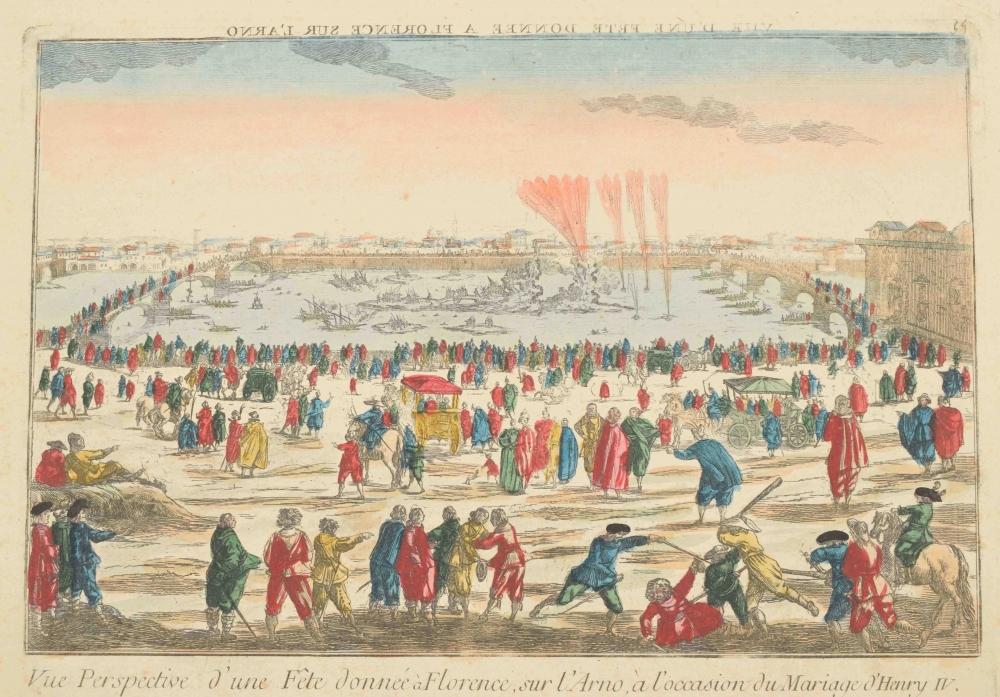 VUE D'UNE FETE DONNEE A FLORENCE SUR L'ARNO
Vue Perspective d'une Fête donnée à Florence, sur l'Arno, à l'occasion du Mariage d'Henry IV.